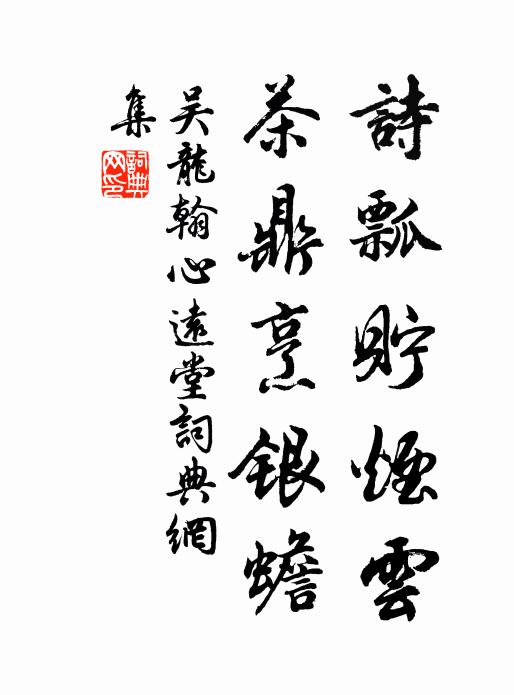 詩瓢貯煙雲
茶鼎烹銀蟾
吳龍翰心遠堂詞典網
集
詞典网印